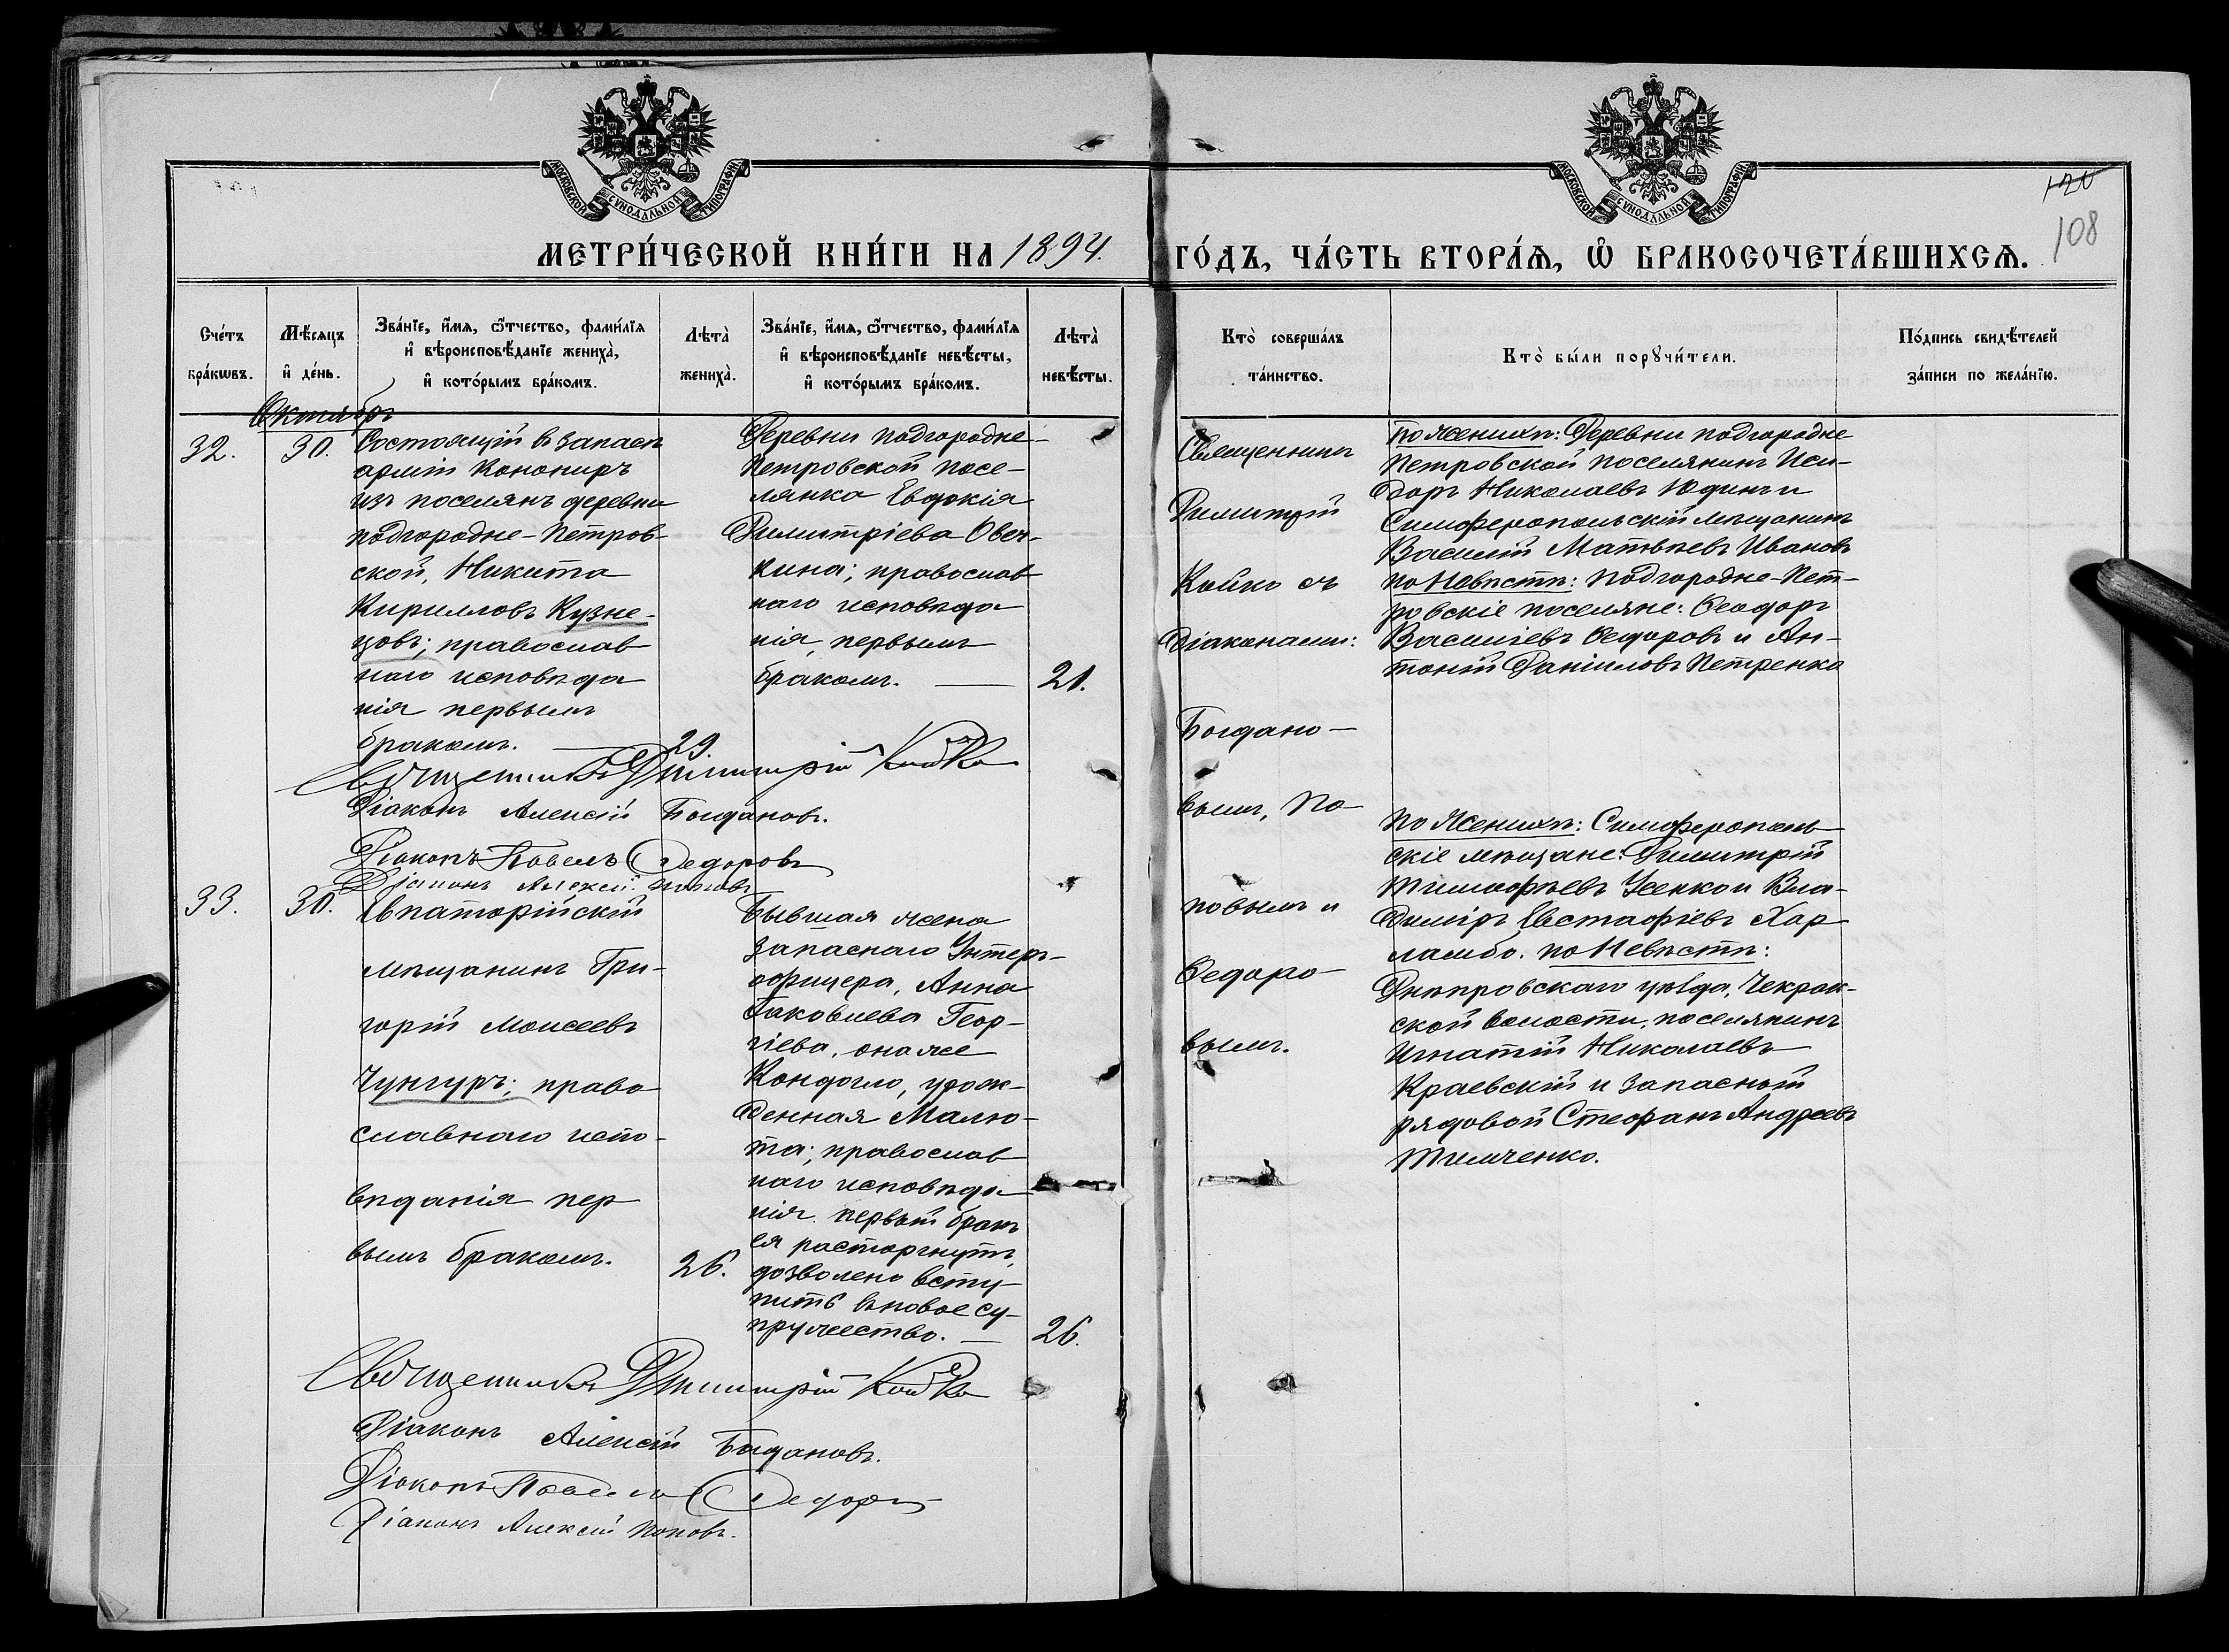 МОСКОВСКОЙ СѴНОДАЛЬНОЙ ТИПОГРАФІИ
МОСКОВСКОЙ СѴНОДАЛЬНОЙ ТИПОГРАФІИ
120
108
МЕТРИ́ЧЕСКОЙ КНИ́ГИ НА 1894.
ГО́ДЪ, ЧА́СТЬ ВТОРА́Ѧ, Ѽ БРАКОСОЧЕТА́ВШИХСѦ.
Сче́тъ бра́кѡвъ.
Мѣ́сяцъ и҆ де́нь.
Зва́нїе, и҆́мѧ, ѻ҆́тчество, фами́лїѧ
и҆ вѣроисповѣ́данїе жениха̀,
и҆ кото́рымъ бра́комъ.
Лѣта̀ жениха̀.
Зва́нїе, и҆́мѧ, ѻ҆́тчество, фами́лїѧ
и҆ вѣроисповѣ́данїе невѣ́сты,
и҆ кото́рымъ бра́комъ.
Лѣта̀ невѣ́сты.
Кто̀ соверша́лъ та́инство.
Кто̀ бы́ли порꙋчи́тели.
По́дпись свидѣ́телей
за́писи по жела́нїю.
Октябрь
32.
30.
Состоящій в запасѣ
арміи Канониръ
изъ поселянъ деревни
подгородне-Петров-
ской, Никита
Кирилловъ Кузне-
цовъ; православ
наго исповѣда
нія первымъ
бракомъ. —
29.
Деревни подгородне-
Петровской посе-
лянка Евдокія
Димитріева Овеч-
кина; православ
наго исповѣда
нія, первымъ
бракомъ. —
21.
Священникъ
Димитрій
Койко съ
діаконами:
Богдано-
вымъ, По-
повымъ и
Ѳедоро-
вымъ.
по Женихѣ: Деревни подгородне
Петровской поселянинъ Иси-
доръ Николаевъ Юдинъ и
Симферопольскій мѣщанинъ
Василій Матвѣевъ Ивановъ
по Невѣстѣ: подгородне-Пет-
ровскіе поселяне: Ѳеодоръ
Василіевъ Ѳедоровъ и Ан-
тоній Даніиловъ Петренко
Священникъ Димитрій Койко
Діаконъ Алексій Богдановъ.
Діаконъ Павелъ Федоровъ
Діаконъ Алексій Поповъ
33.
30.
Евпаторійскій
мѣщанинъ Гри-
горій Моисеевъ
Чунгуръ; право
славнаго испо-
вѣданія пер
вымъ бракомъ.
26.
Бывшая жена
запаснаго Унтеръ-
офицера, Анна
Іаковлева Геор-
гіева, она же
Кондогло, урож-
денная Малю-
та; православ
наго исповѣда
нія. первый бракъ
ея расторгнутъ,
дозволено всту-
пить въ новое су-
пружество. —
26.
по Женихѣ: Симферополь-
скіе мѣщане: Димитрій
Тимофѣевъ Усенко и Вла-
диміръ Евстафіевъ Хар
ламбо. по Невѣстѣ:
Днѣпровскаго уѣзда, Чекрак-
ской волости, поселянинъ
Игнатій Николаевъ
Краевскій и запасный
рядовой Стефанъ Андреевъ
Тимченко.
Священникъ Димитрій Койко
Діаконъ Алексій Богдановъ.
Діаконъ Павелъ Федоровъ
Діаконъ Алексій Поповъ.